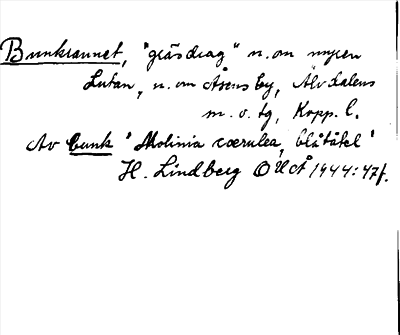 Bunkrunnet, "gräsdrag" n. om myren
Lutan, n. om Åsens by, Älvdalens
m. o. tg, Kopp. l.
Av bunk 'Molinia coerulea, blåtåtel'
H. Lindberg OUÅ 1944: 47f.